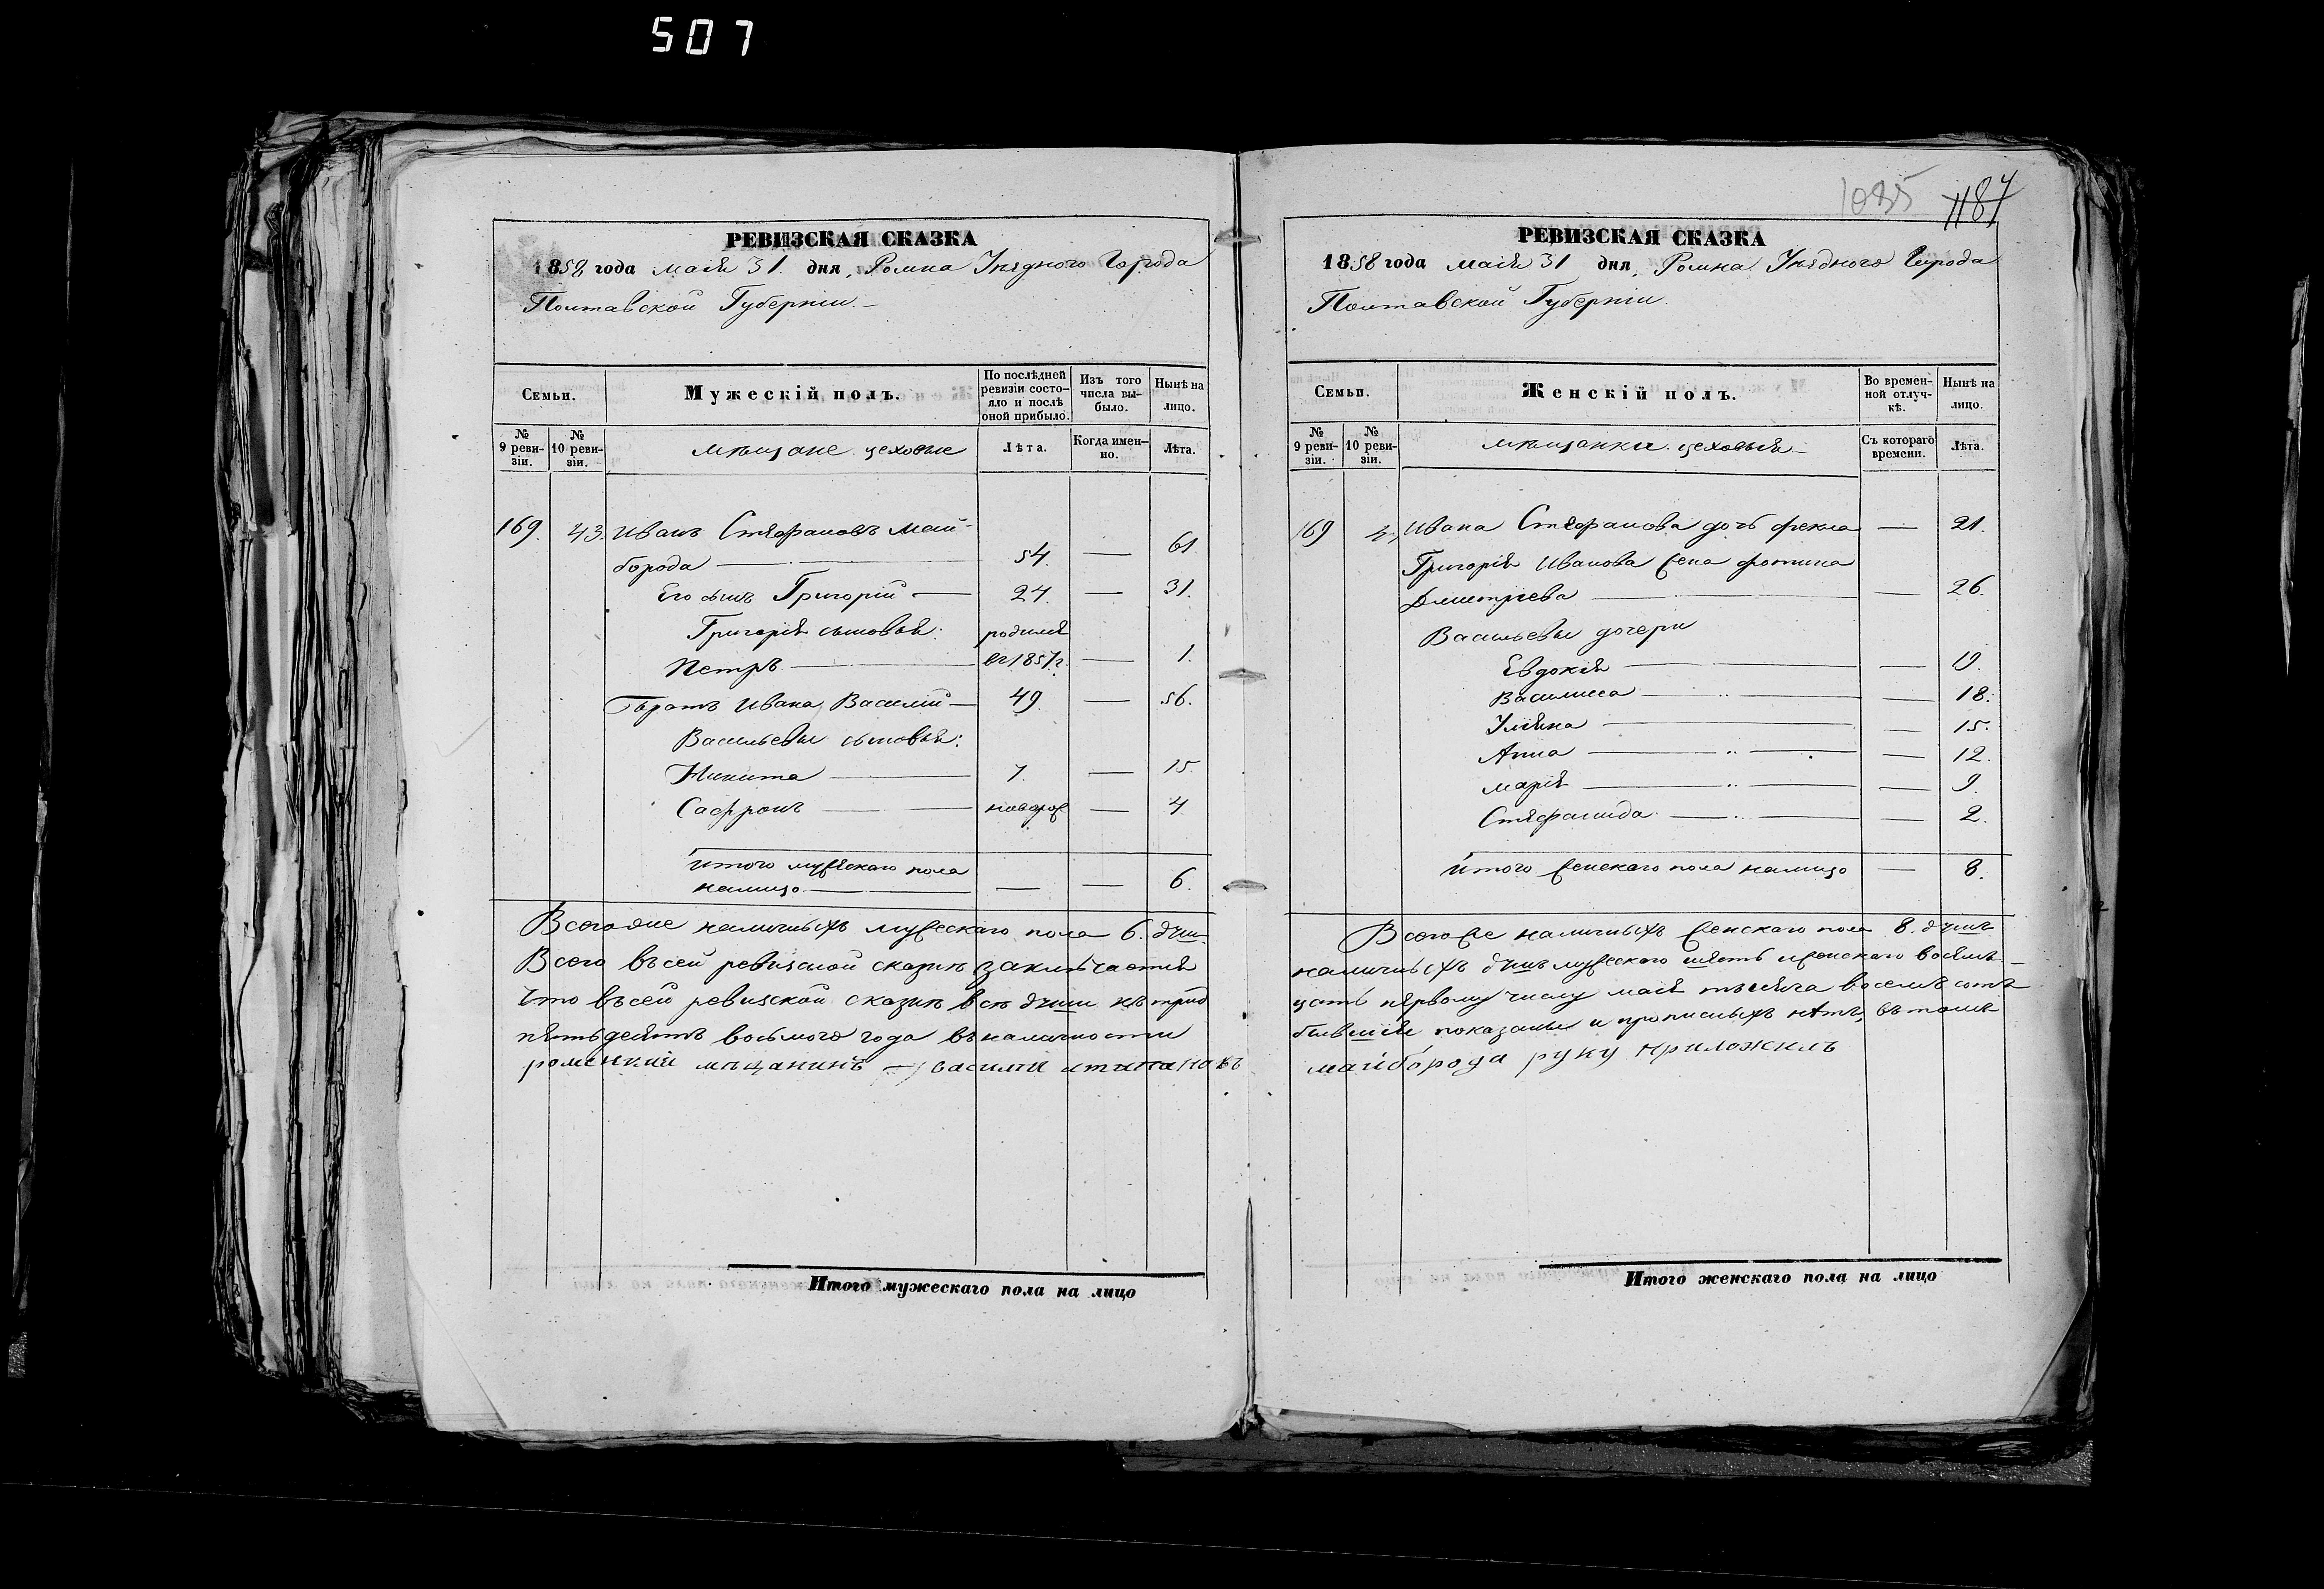 507
РЕВИЗСКАЯ СКАЗКА
1858 года маія 31. дня, Ромна Уѣзднаго Города
Полтавской Губерніи.
Семьи.
Мужескій полъ.
По послѣдней ревизіи состояло и послѣ оной прибыло.
Изъ того числа выбыло.
Нынѣ на лицо.
№ 9 ревизіи.
№ 10 ревизіи.
мѣщане цеховые
Лѣта.
Когда именно.
Лѣта.
169. 43. Иванъ Стефановъ Май-
борода — 54. — 61.
Его сынъ Григорій — 24. — 31.
Григорія сыновья: родился
Петръ — въ 1857 г. — 1.
Братъ Ивана Василій — 49. — 56.
Васильевы сыновья:
Никита — 7. — 15.
Сафронъ — новорож — 4
Итого мужескаго пола
налицо — — — 6.
Всего же наличныхъ мужескаго пола 6. душ.
Всего въ сей ревизской сказкѣ заключается
Что въ сей ревизской сказкѣ всѣ души къ трид
пятьдесятъ восьмого года въ наличности
роменкий мѣщанинъ — василий
Итого мужескаго пола на лицо
1085 1187
РЕВИЗСКАЯ СКАЗКА
1858 года маія 31 дня, Ромна Уѣзднаго Города
Полтавской Губерніи.
Семьи.
Женскій полъ.
Во временной отлучкѣ.
Нынѣ на лицо.
№ 9 ревизіи.
№ 10 ревизіи.
мѣщанки цеховыя
Съ котораго времени.
Лѣта.
169 Ивана Стефанова дочь Фекла — 21.
Григорія Иванова жена Фотина
Дмитріева — — 26.
Васильевы дочери
Евдокія — — 19.
Василиса — — 18.
Уліяна — — 15.
Анна — — 12.
Марія — — 9.
Стефанида — — 2.
Итого женскаго пола налицо — 8.
Всего же наличныхъ женскаго пола 8. душъ
наличныхъ душъ мужескаго шесть и женскаго восемь —
цать первому числу маія тысяча восемь сотъ
бывшія показаны и прописныхъ нѣтъ, въ томъ
майборода руку приложилъ
Итого женскаго пола на лицо